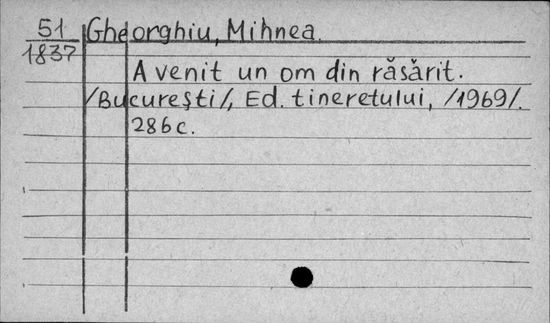 51 Gheorghiu, Mihnea.
1837
A venit un om din răsărit.
/Bucureşti/, Ed. tineretului, /1969/.
286c.